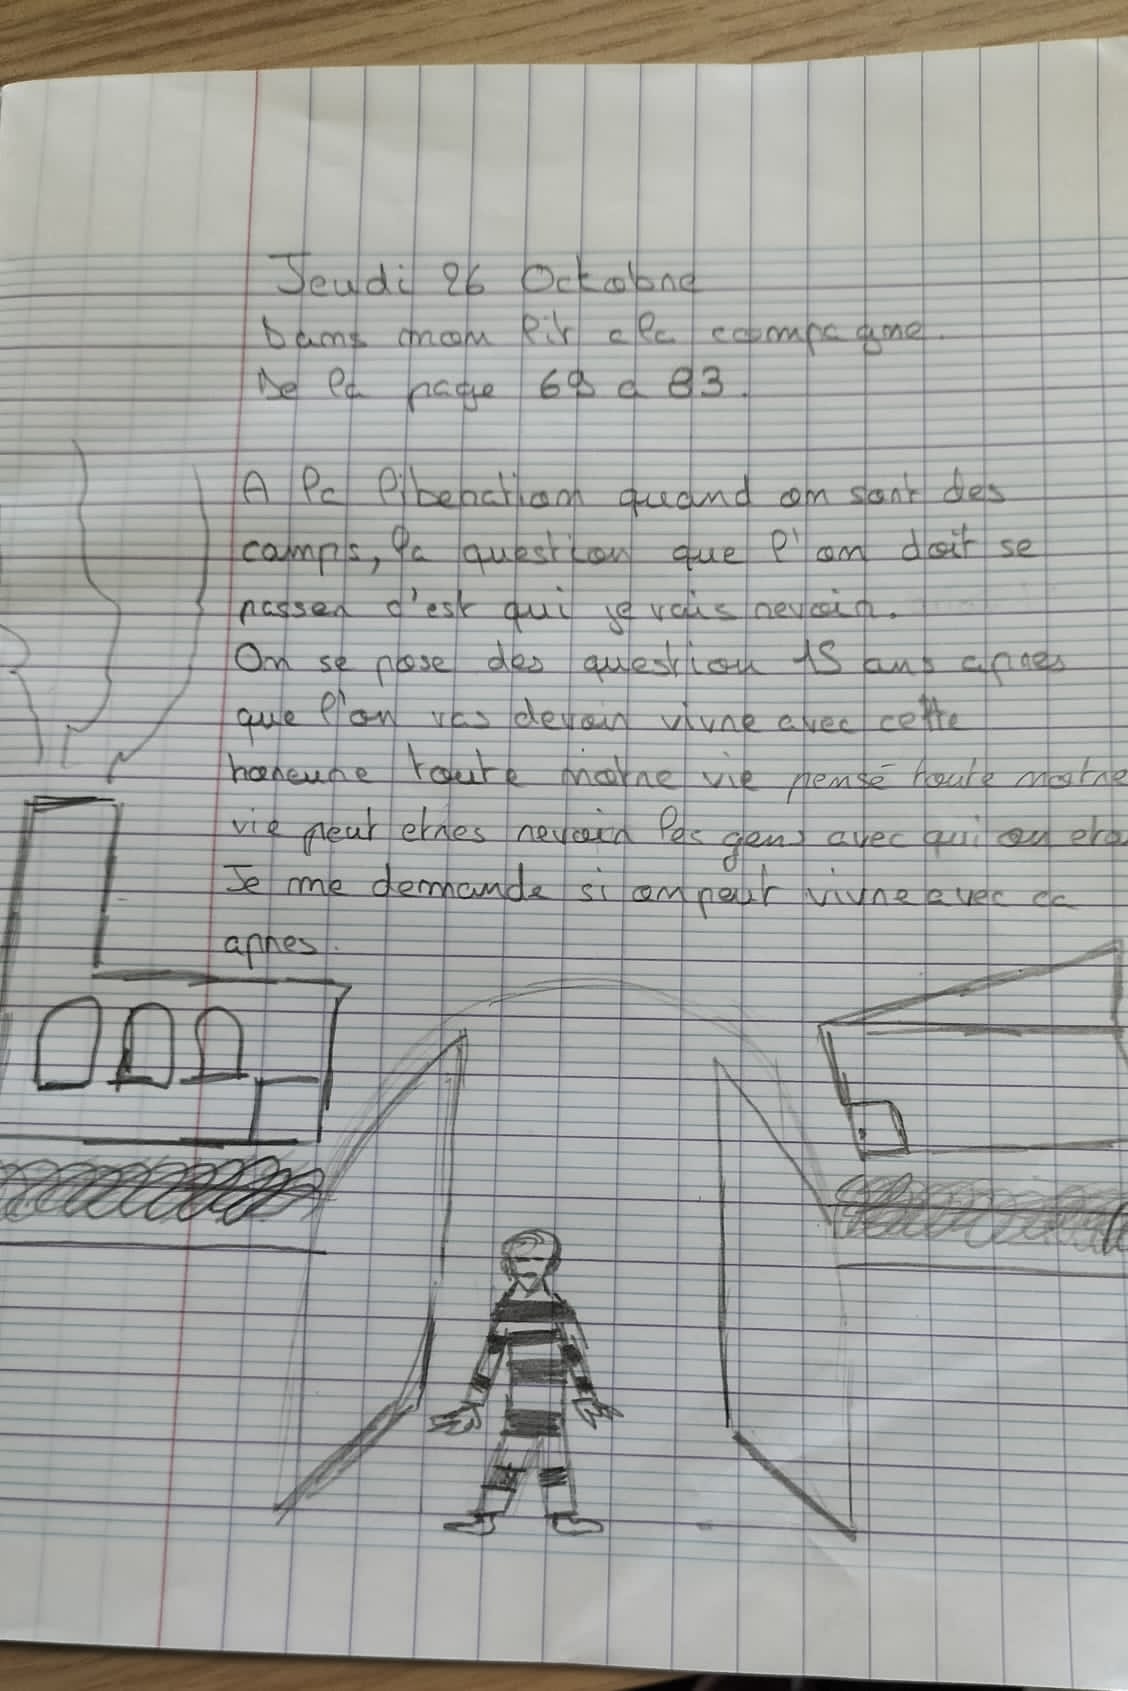 Jeudi 26 Octobre
Dans mon lit a la campagne.
De la page 68 a 83.
A la liberation quand on sort des
camps, la question que l'on doit se
passer c'est qui je vais revoir.
On se pose des question 15 ans apres
que l'on vas devoir vivre avec cette
horeure toute notre vie pensé toute notre
vie peut etres revoir les gens avec qui on eta
Je me demande si on peut vivre avec ca
apres.